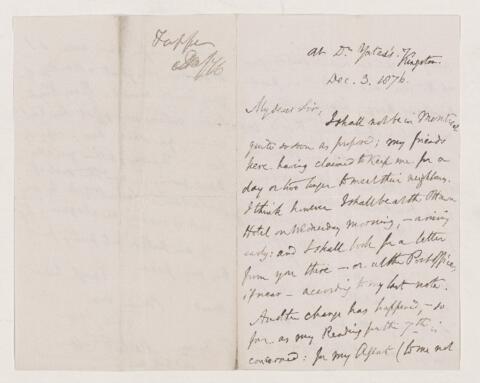 Tupper
at Dr. Yates's, Kingston.
Dec. 3. 1876.
My dear Sir,
I shall not be in Montreal
quite so soon as proposed; my friends
here having claimed to keep me for a
day or two longer to meet their neighbours.
I think however I shall be at the Ottawa
Hotel on Wednesday morning, – arriving
early: and I shall look for a letter
from you there – or at the Post Office,
if near – according to my last note.
Another change has happened, – so
far as my Reading for the 7th is
concerned: for my Agent (to me not